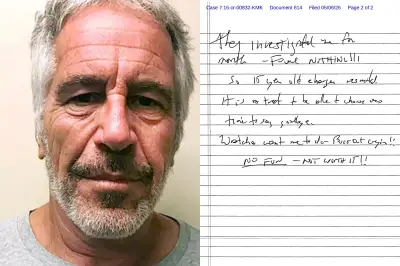 Case 7:16-cr-00832-KMK Document 614 Filed 05/06/26 Page 2 of 2
They investigated me for
month - Found NOTHING!!!
So 15 year old charges resulted
It is a treat to be able to choose ones
time to say goodbye.
Watcha want me to do - Bust out cryin!!
NO FUN - NOT WORTH IT!!